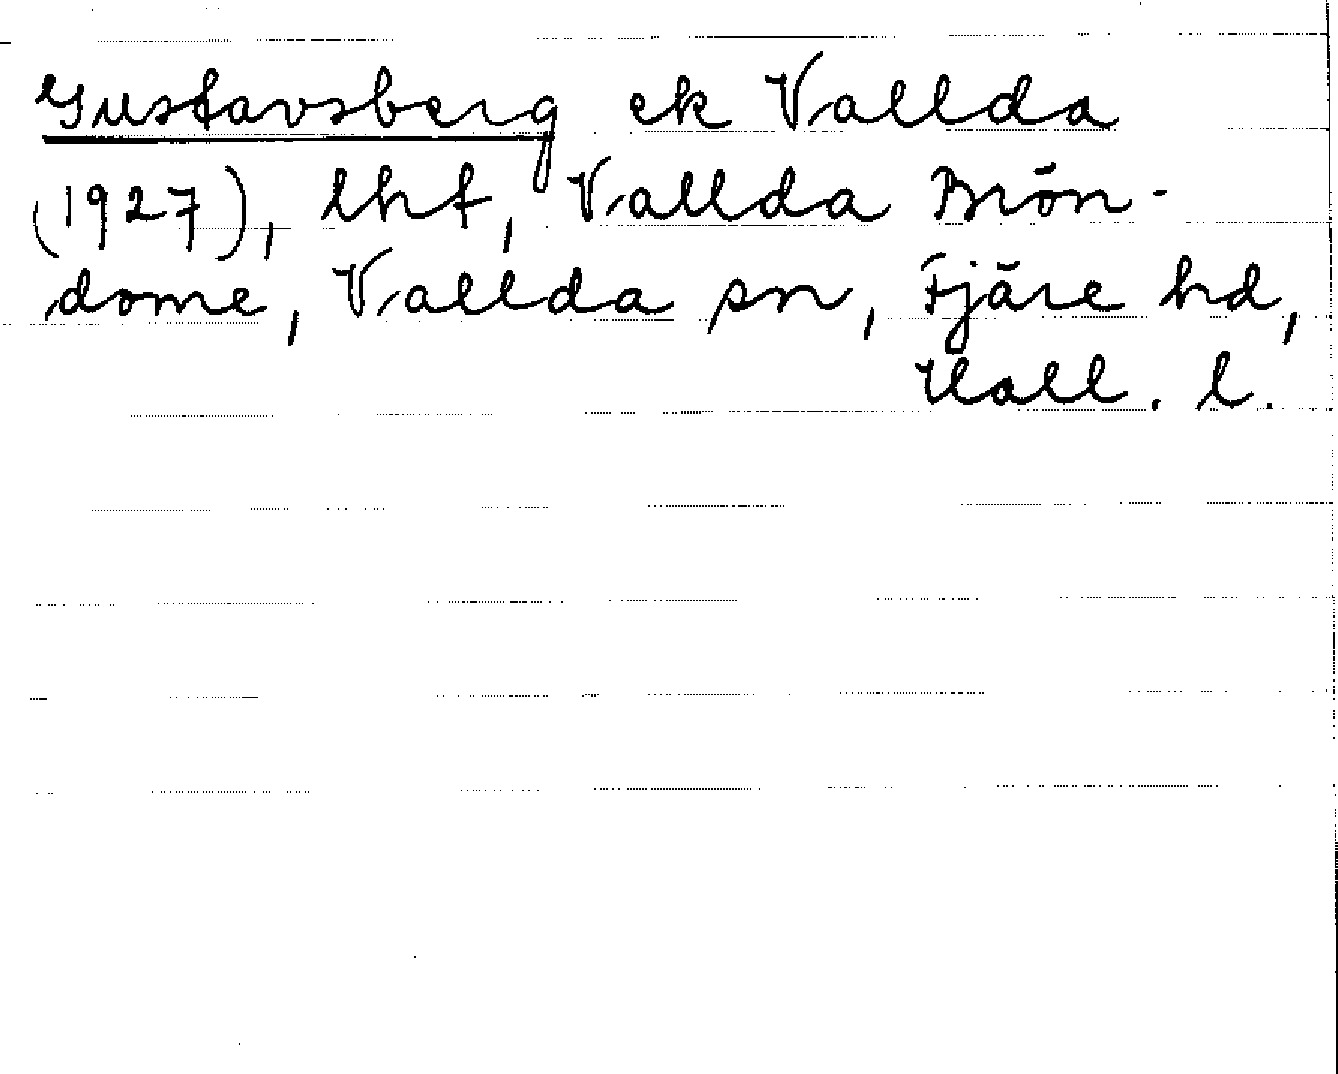 Gustavsberg ek Vallda
(1927), lht, Vallda Brön-
dome, Vallda sn, Fjäre hd,
Hall. l.